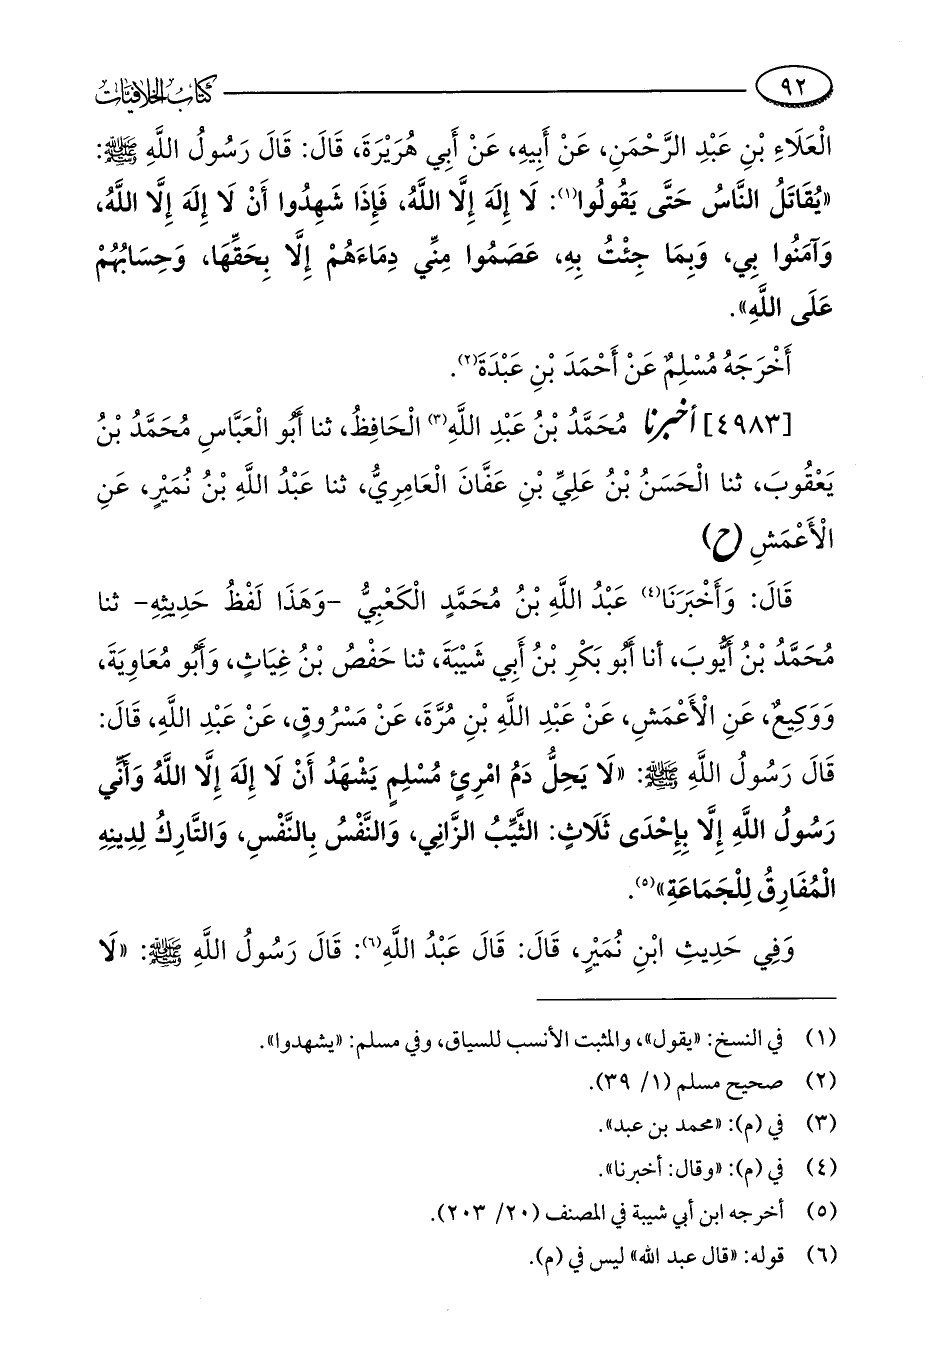 ٩٢
كتاب الخلافيات
الْعَلَاءِ بْنِ عَبْدِ الرَّحْمَنِ، عَنْ أَبِيهِ، عَنْ أَبِي هُرَيْرَةَ، قَالَ: قَالَ رَسُولُ اللَّهِ ﷺ:
«يُقَاتَلُ النَّاسُ حَتَّى يَقُولُوا(١): لَا إِلَهَ إِلَّا اللَّهُ، فَإِذَا شَهِدُوا أَنْ لَا إِلَهَ إِلَّا اللَّهُ،
وَآمَنُوا بِي، وَبِمَا جِئْتُ بِهِ، عَصَمُوا مِنِّي دِمَاءَهُمْ إِلَّا بِحَقِّهَا، وَحِسَابُهُمْ
عَلَى اللَّهِ».
أَخْرَجَهُ مُسْلِمٌ عَنْ أَحْمَدَ بْنِ عَبْدَةَ(٢).
[٤٩٨٣] أخبرنا مُحَمَّدُ بْنُ عَبْدِ اللَّهِ(٣) الْحَافِظُ، ثنا أَبُو الْعَبَّاسِ مُحَمَّدُ بْنُ
يَعْقُوبَ، ثنا الْحَسَنُ بْنُ عَلِيِّ بْنِ عَفَّانَ الْعَامِرِيُّ، ثنا عَبْدُ اللَّهِ بْنُ نُمَيْرٍ، عَنِ
الْأَعْمَشِ (ح)
قَالَ: وَأَخْبَرَنَا(٤) عَبْدُ اللَّهِ بْنُ مُحَمَّدٍ الْكَعْبِيُّ -وَهَذَا لَفْظُ حَدِيثِهِ- ثنا
مُحَمَّدُ بْنُ أَيُّوبَ، أنا أَبُو بَكْرِ بْنُ أَبِي شَيْبَةَ، ثنا حَفْصُ بْنُ غِيَاثٍ، وَأَبُو مُعَاوِيَةَ،
وَوَكِيعٌ، عَنِ الْأَعْمَشِ، عَنْ عَبْدِ اللَّهِ بْنِ مُرَّةَ، عَنْ مَسْرُوقٍ، عَنْ عَبْدِ اللَّهِ، قَالَ:
قَالَ رَسُولُ اللَّهِ ﷺ: «لَا يَحِلُّ دَمُ امْرِئٍ مُسْلِمٍ يَشْهَدُ أَنْ لَا إِلَهَ إِلَّا اللَّهُ وَأَنِّي
رَسُولُ اللَّهِ إِلَّا بِإِحْدَى ثَلَاثٍ: الثَّيِّبُ الزَّانِي، وَالنَّفْسُ بِالنَّفْسِ، وَالتَّارِكُ لِدِينِهِ
الْمُفَارِقُ لِلْجَمَاعَةِ»(٥).
وَفِي حَدِيثِ ابْنِ نُمَيْرٍ، قَالَ: قَالَ عَبْدُ اللَّهِ(٦): قَالَ رَسُولُ اللَّهِ ﷺ: «لَا
(١) في النسخ: «يقول»، والمثبت الأنسب للسياق، وفي مسلم: «يشهدوا».
(٢) صحيح مسلم (١/ ٣٩).
(٣) في (م): «محمد بن عبد».
(٤) في (م): «وقال: أخبرنا».
(٥) أخرجه ابن أبي شيبة في المصنف (٢٠/ ٢٠٣).
(٦) قوله: «قال عبد الله» ليس في (م).